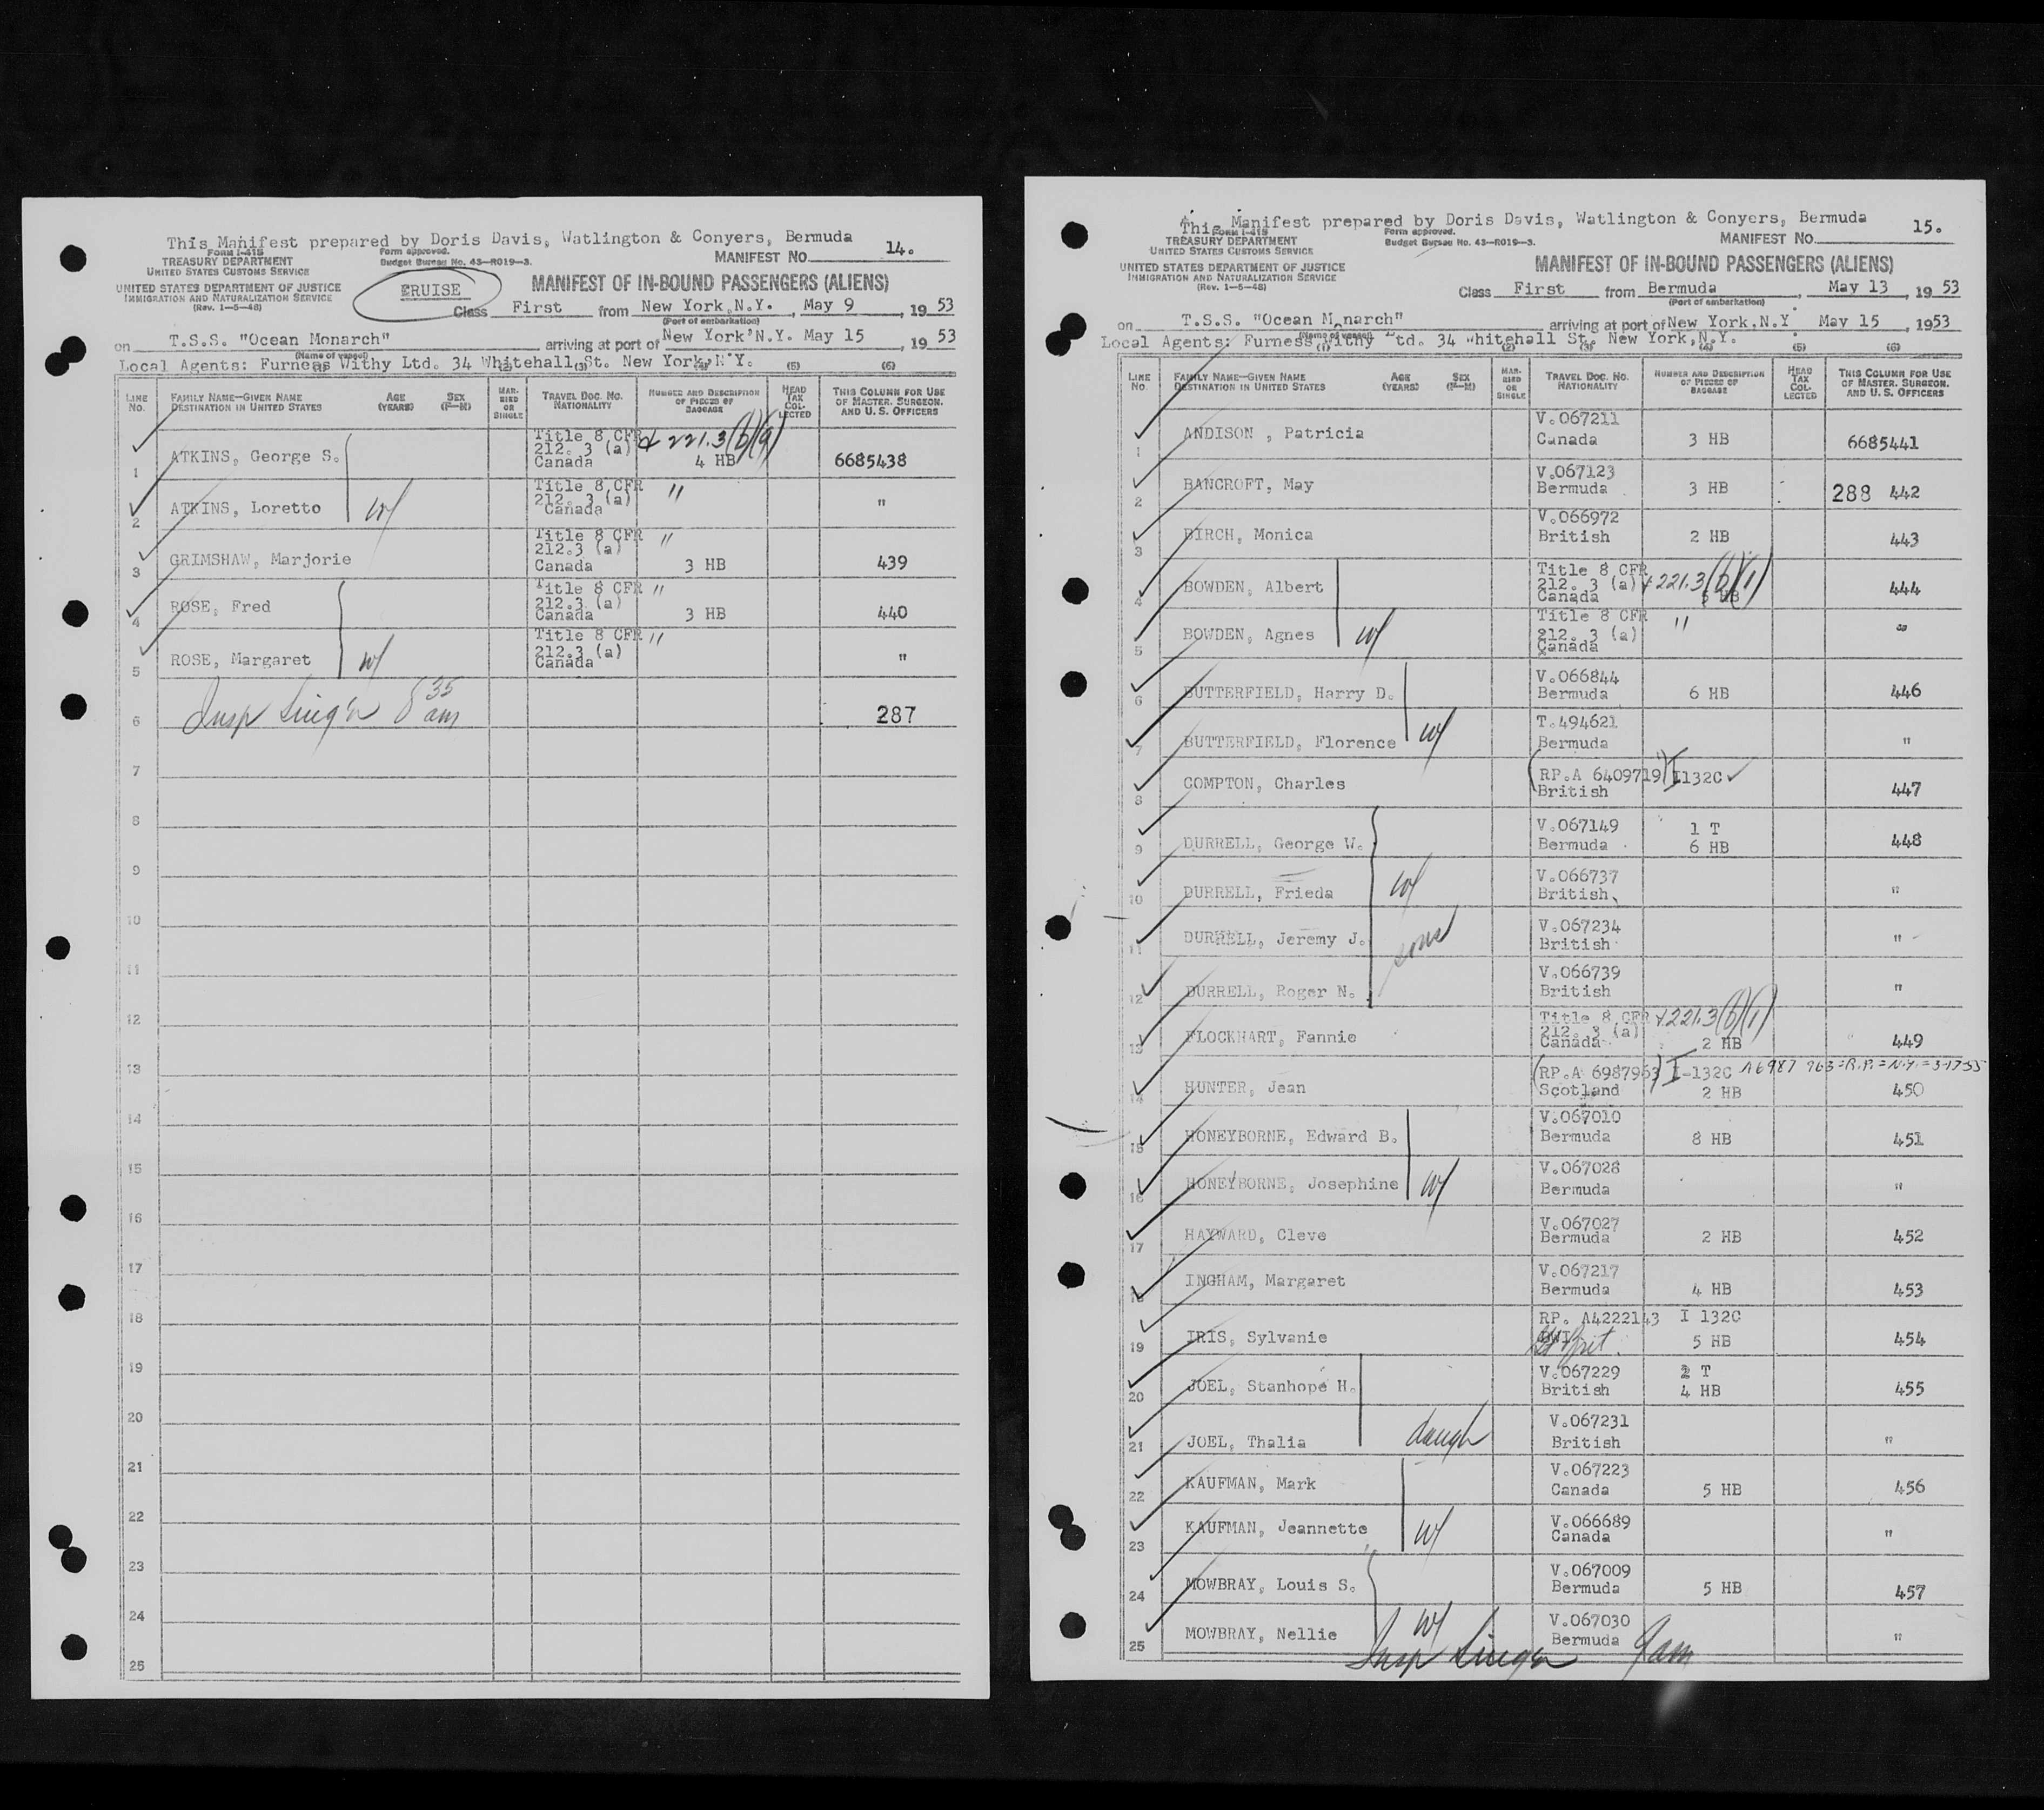 This Manifest prepared by Doris Davis, Watlington & Conyers, Bermuda
FORM I-415
TREASURY DEPARTMENT
UNITED STATES CUSTOMS SERVICE
Form approved.
Budget Bureau No. 43-R019-3.
MANIFEST NO. 14.
UNITED STATES DEPARTMENT OF JUSTICE
IMMIGRATION AND NATURALIZATION SERVICE
(Rev. 1-5-48)
CRUISE
MANIFEST OF IN-BOUND PASSENGERS (ALIENS)
Class First from New York, N.Y. , May 9 , 19 53
(Port of embarkation)
on T.S.S. "Ocean Monarch" arriving at port of New York N.Y. May 15 , 19 53
(Name of vessel)
Local Agents: Furness Withy Ltd. 34 Whitehall St. New York, N.Y.
(1) (2) (3) (4) (5) (6)
LINE No. FAMILY NAME—GIVEN NAME DESTINATION IN UNITED STATES AGE (YEARS) SEX (F—M) MARRIED OR SINGLE TRAVEL DOC. NO. NATIONALITY NUMBER AND DESCRIPTION OF PIECES OF BAGGAGE HEAD TAX COLLECTED THIS COLUMN FOR USE OF MASTER, SURGEON, AND U. S. OFFICERS
1 ATKINS, George S. Title 8 CFR 212. 3 (a) Canada & 221.3(b)(9) 4 HB 6685438
2 ATKINS, Loretto w/ Title 8 CFR 212. 3 (a) Canada " "
3 GRIMSHAW, Marjorie Title 8 CFR 212.3 (a) Canada " 3 HB 439
4 ROSE, Fred Title 8 CFR 212.3 (a) Canada " 3 HB 440
5 ROSE, Margaret w/ Title 8 CFR 212.3 (a) Canada " "
6 Insp Singer 8 35 am 287
7
8
9
10
11
12
13
14
15
16
17
18
19
20
21
22
23
24
25
This Manifest prepared by Doris Davis, Watlington & Conyers, Bermuda
FORM I-415
TREASURY DEPARTMENT
UNITED STATES CUSTOMS SERVICE
Form approved.
Budget Bureau No. 43-R019-3.
MANIFEST NO. 15.
UNITED STATES DEPARTMENT OF JUSTICE
IMMIGRATION AND NATURALIZATION SERVICE
(Rev. 1-5-48)
MANIFEST OF IN-BOUND PASSENGERS (ALIENS)
Class First from Bermuda , May 13 , 19 53
(Port of embarkation)
on T.S.S. "Ocean Monarch" arriving at port of New York, N.Y. May 15 , 1953
(Name of vessel)
Local Agents: Furness Withy Ltd. 34 Whitehall St. New York, N.Y.
(1) (2) (3) (4) (5) (6)
LINE No. FAMILY NAME—GIVEN NAME DESTINATION IN UNITED STATES AGE (YEARS) SEX (F—M) MARRIED OR SINGLE TRAVEL DOC. NO. NATIONALITY NUMBER AND DESCRIPTION OF PIECES OF BAGGAGE HEAD TAX COLLECTED THIS COLUMN FOR USE OF MASTER, SURGEON, AND U. S. OFFICERS
1 ANDISON , Patricia V.067211 Canada 3 HB 6685441
2 BANCROFT, May V.067123 Bermuda 3 HB 288 442
3 BIRCH, Monica V.066972 British 2 HB 443
4 BOWDEN, Albert Title 8 CFR 212. 3 (a) Canada & 221.3(b)(1) HB 444
5 BOWDEN, Agnes w/ Title 8 CFR 212. 3 (a) Canada " "
6 BUTTERFIELD, Harry D. V.066844 Bermuda 6 HB 446
7 BUTTERFIELD, Florence w/ T.494621 Bermuda "
8 COMPTON, Charles (RP.A 6409719) I132C British 447
9 DURRELL, George W. V.067149 Bermuda 1 T 6 HB 448
10 DURRELL, Frieda w/ V.066737 British "
11 DURRELL, Jeremy J. sons V.067234 British "
12 DURRELL, Roger N. V.066739 British "
13 FLOCKHART, Fannie Title 8 CFR 212. 3 (a) Canada & 221.3(b)(1) 2 HB 449
14 HUNTER, Jean (RP.A 6987963) I-132C Scotland 2 HB A6987 963=R.P.=N.Y.=3-17-55 450
15 HONEYBORNE, Edward B. V.067010 Bermuda 8 HB 451
16 HONEYBORNE, Josephine w/ V.067028 Bermuda "
17 HAYWARD, Cleve V.067027 Bermuda 2 HB 452
18 INGHAM, Margaret V.067217 Bermuda 4 HB 453
19 IRIS, Sylvanie RP. A4222143 I 132C 5 HB 454
20 JOEL, Stanhope H. V.067229 British 2 T 4 HB 455
21 JOEL, Thalia daugh V.067231 British "
22 KAUFMAN, Mark V.067223 Canada 5 HB 456
23 KAUFMAN, Jeannette w/ V.066689 Canada "
24 MOWBRAY, Louis S. V.067009 Bermuda 5 HB 457
25 MOWBRAY, Nellie w/ V.067030 Bermuda "
Insp Singer 9 am